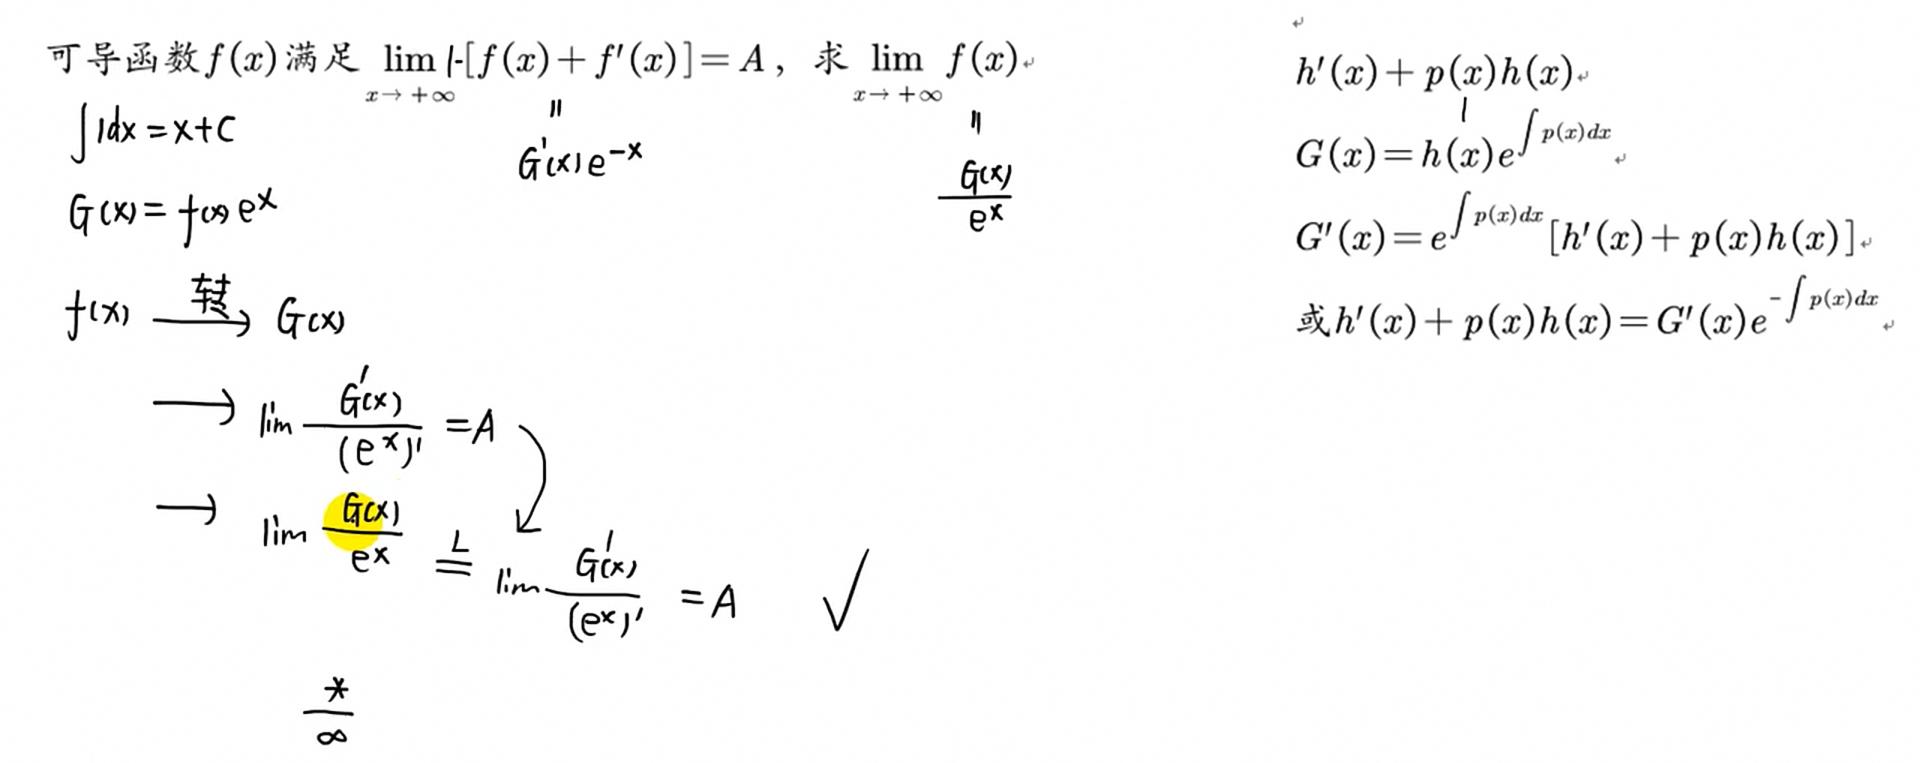 可导函数f(x)满足 lim x→+∞ 1·[f(x)+f′(x)]=A，求 lim x→+∞ f(x)
∫1dx=x+C
"
G'(x)e^{-x}
"
G(x)/e^x
G(x)=f(x)e^x
f(x) 转→ G(x)
→ lim G'(x)/(e^x)' =A
→ lim G(x)/e^x =^L lim G'(x)/(e^x)' =A ✓
*/∞
h′(x)+p(x)h(x)
1
G(x)=h(x)e^{∫p(x)dx}
G′(x)=e^{∫p(x)dx}[h′(x)+p(x)h(x)]
或h′(x)+p(x)h(x)=G′(x)e^{-∫p(x)dx}